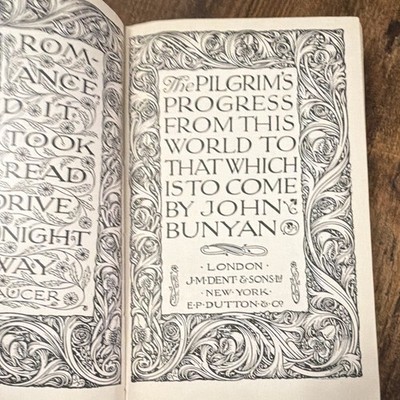 ROM-
ANCE
D·IT
TOOK
READ
DRIVE
NIGHT
WAY
AUCER
The PILGRIM'S
PROGRESS
FROM THIS
WORLD TO
THAT WHICH
IS TO COME
BY JOHN
BUNYAN
·LONDON·
J·M·DENT & SONS Ltd
·NEW·YORK·
E·P·DUTTON·&·Co